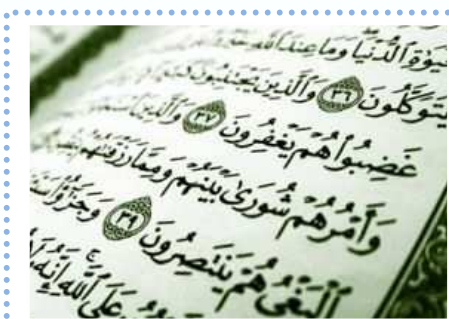 ٱلدُّنْيَا وَمَا عِندَ ٱللَّهِ
يَتَوَكَّلُونَ ٣٦ وَٱلَّذِينَ يَجْتَنِبُونَ
غَضِبُوا۟ هُمْ يَغْفِرُونَ ٣٧ وَٱلَّذِينَ
وَأَمْرُهُمْ شُورَىٰ بَيْنَهُمْ وَمِمَّا رَزَقْنَـٰهُمْ
ٱلْبَغْىُ هُمْ يَنتَصِرُونَ ٣٩ وَجَزَٰٓؤُا۟
عَلَى ٱللَّهِ إِنَّهُۥ